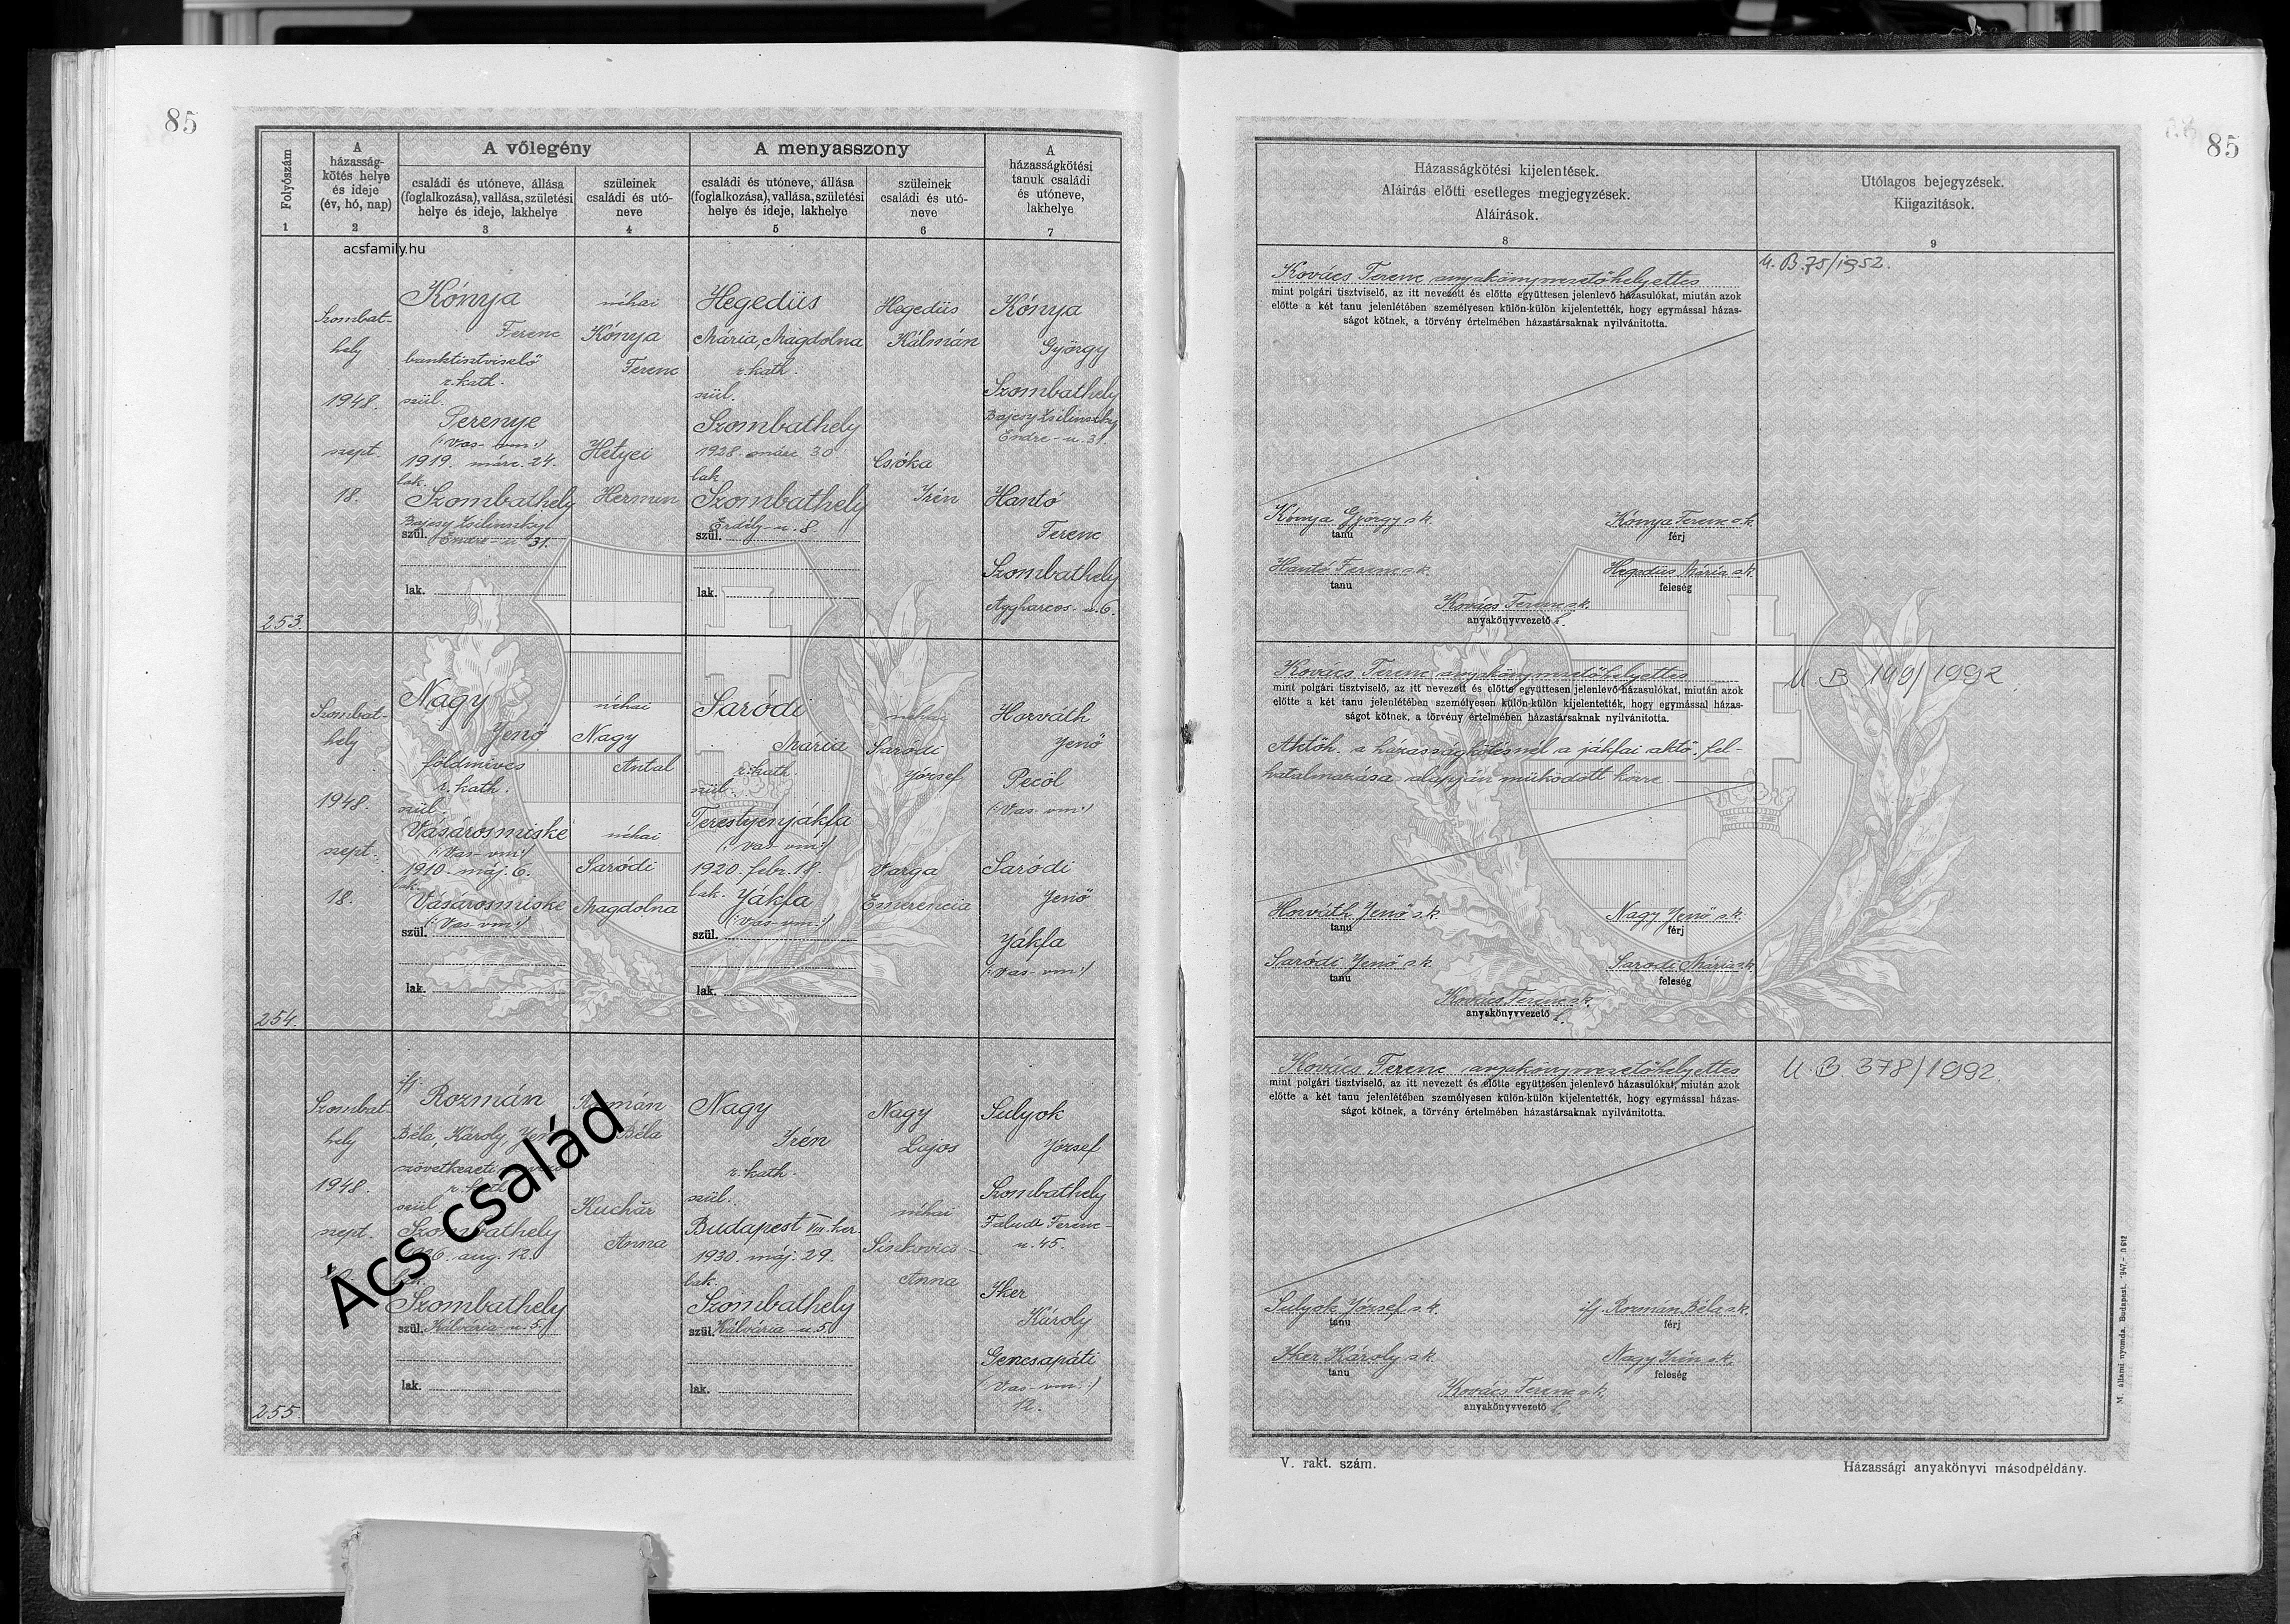 85
Folyószám
1
A
házasság-
kötés helye
és ideje
(év, hó, nap)
2
A vőlegény
családi és utóneve, állása
(foglalkozása), vallása, születési
helye és ideje, lakhelye
3
szüleinek
családi és utó-
neve
4
A menyasszony
családi és utóneve, állása
(foglalkozása), vallása, születési
helye és ideje, lakhelye
5
szüleinek
családi és utó-
neve
6
A
házasságkötési
tanuk családi
és utóneve,
lakhelye
7
acsfamily.hu
253.
Szombat-
hely
1948.
szept.
18.
Kónya
Ferenc
banktisztviselő
r. kath.
szül.
Perenye
(: Vas- vm :)
1919. márc. 24.
lak.
Szombathely
Bajcsy Zsilinszky
szül. Endre- u 31.
lak.
néhai
Kónya
Ferenc
Hetyei
Hermin
Hegedüs
Mária, Magdolna
r. kath.
szül.
Szombathely
1928. márc. 30.
lak.
Szombathely
Erdély- u. 8.
szül.
lak.
Hegedüs
Kálmán
Csóka
Irén
Kónya
György
Szombathely
Bajcsy Zsilinszky
Endre- u. 31.
Hantó
Ferenc
Szombathely
Aggharcos- u. 6.
254.
Szombat-
hely
1948.
szept.
18.
Nagy
Jenő
földmíves
r. kath.
szül.
Vásárosmiske
(: Vas- vm :)
1910. máj. 6.
lak.
Vásárosmiske
(: Vas vm :)
szül.
lak.
néhai
Nagy
Antal
néhai
Saródi
Magdolna
Saródi
Mária
r. kath.
szül.
Terestyénjákfa
(: Vas- vm :)
1920. febr. 18.
lak. Jákfa
(: Vas- vm. :)
szül.
lak.
néhai
Saródi
József
Varga
Emerencia
Horváth
Jenő
Pecöl
(: Vas- vm :)
Saródi
Jenő
Jákfa
(: Vas- vm :)
255.
Szombat-
hely
1948.
szept.
ifj.
Rozmán
Béla, Károly,
szövetkezeti
r. kath.
szül.
Szombathely
aug. 12.
lak.
Szombathely
szül. Kálvária- u. 5.
lak.
Rozmán
Béla
Kuchár
Anna
Nagy
Irén
r. kath.
szül.
Budapest VIII. ker.
1930. máj. 29.
lak.
Szombathely
szül. Kálvária- u. 5.
lak.
Nagy
Lajos
néhai
Sinkovics
Anna
Sulyok
József
Szombathely
Faludi Ferenc-
u. 45.
Iker
Károly
Gencsapáti
(: Vas- vm. :)
12.
Ács család
85
Házasságkötési kijelentések.
Aláirás előtti esetleges megjegyzések.
Aláirások.
8
Utólagos bejegyzések.
Kiigazitások.
9
Kovács Ferenc anyakönyvvezetőhelyettes
mint polgári tisztviselő, az itt nevezett és előtte együttesen jelenlevő házasulókat, miután azok
előtte a két tanu jelenlétében személyesen külön-külön kijelentették, hogy egymással házas-
ságot kötnek, a törvény értelmében házastársaknak nyilvánitotta.
U. B. 75/1952.
Kónya György s.k.
tanu
Kónya Ferenc s.k.
férj
Hantó Ferenc s.k.
tanu
Hegedüs Mária s.k.
feleség
Kovács Ferenc s.k.
anyakönyvvezető h.
Kovács Ferenc anyakönyvvezetőhelyettes
mint polgári tisztviselő, az itt nevezett és előtte együttesen jelenlevő házasulókat, miután azok
előtte a két tanu jelenlétében személyesen külön-külön kijelentették, hogy egymással házas-
ságot kötnek, a törvény értelmében házastársaknak nyilvánitotta.
Aktőh. a házasságkötésnél a jákfai aktő. fel-
hatalmazása alapján működött közre.
U. B 149/1992
Horváth Jenő s.k.
tanu
Nagy Jenő s.k.
férj
Saródi Jenő s.k.
tanu
Saródi Mária s.k.
feleség
Kovács Ferenc s.k.
anyakönyvvezető h.
Kovács Ferenc anyakönyvvezetőhelyettes
mint polgári tisztviselő, az itt nevezett és előtte együttesen jelenlevő házasulókat, miután azok
előtte a két tanu jelenlétében személyesen külön-külön kijelentették, hogy egymással házas-
ságot kötnek, a törvény értelmében házastársaknak nyilvánitotta.
U. B. 378/1992.
Sulyok József s.k.
tanu
ifj. Rozmán Béla s.k.
férj
Iker Károly s.k.
tanu
Nagy Irén s.k.
feleség
Kovács Ferenc s.k.
anyakönyvvezető h.
V. rakt. szám.
Házassági anyakönyvi másodpéldány.
M. állami nyomda, Budapest.